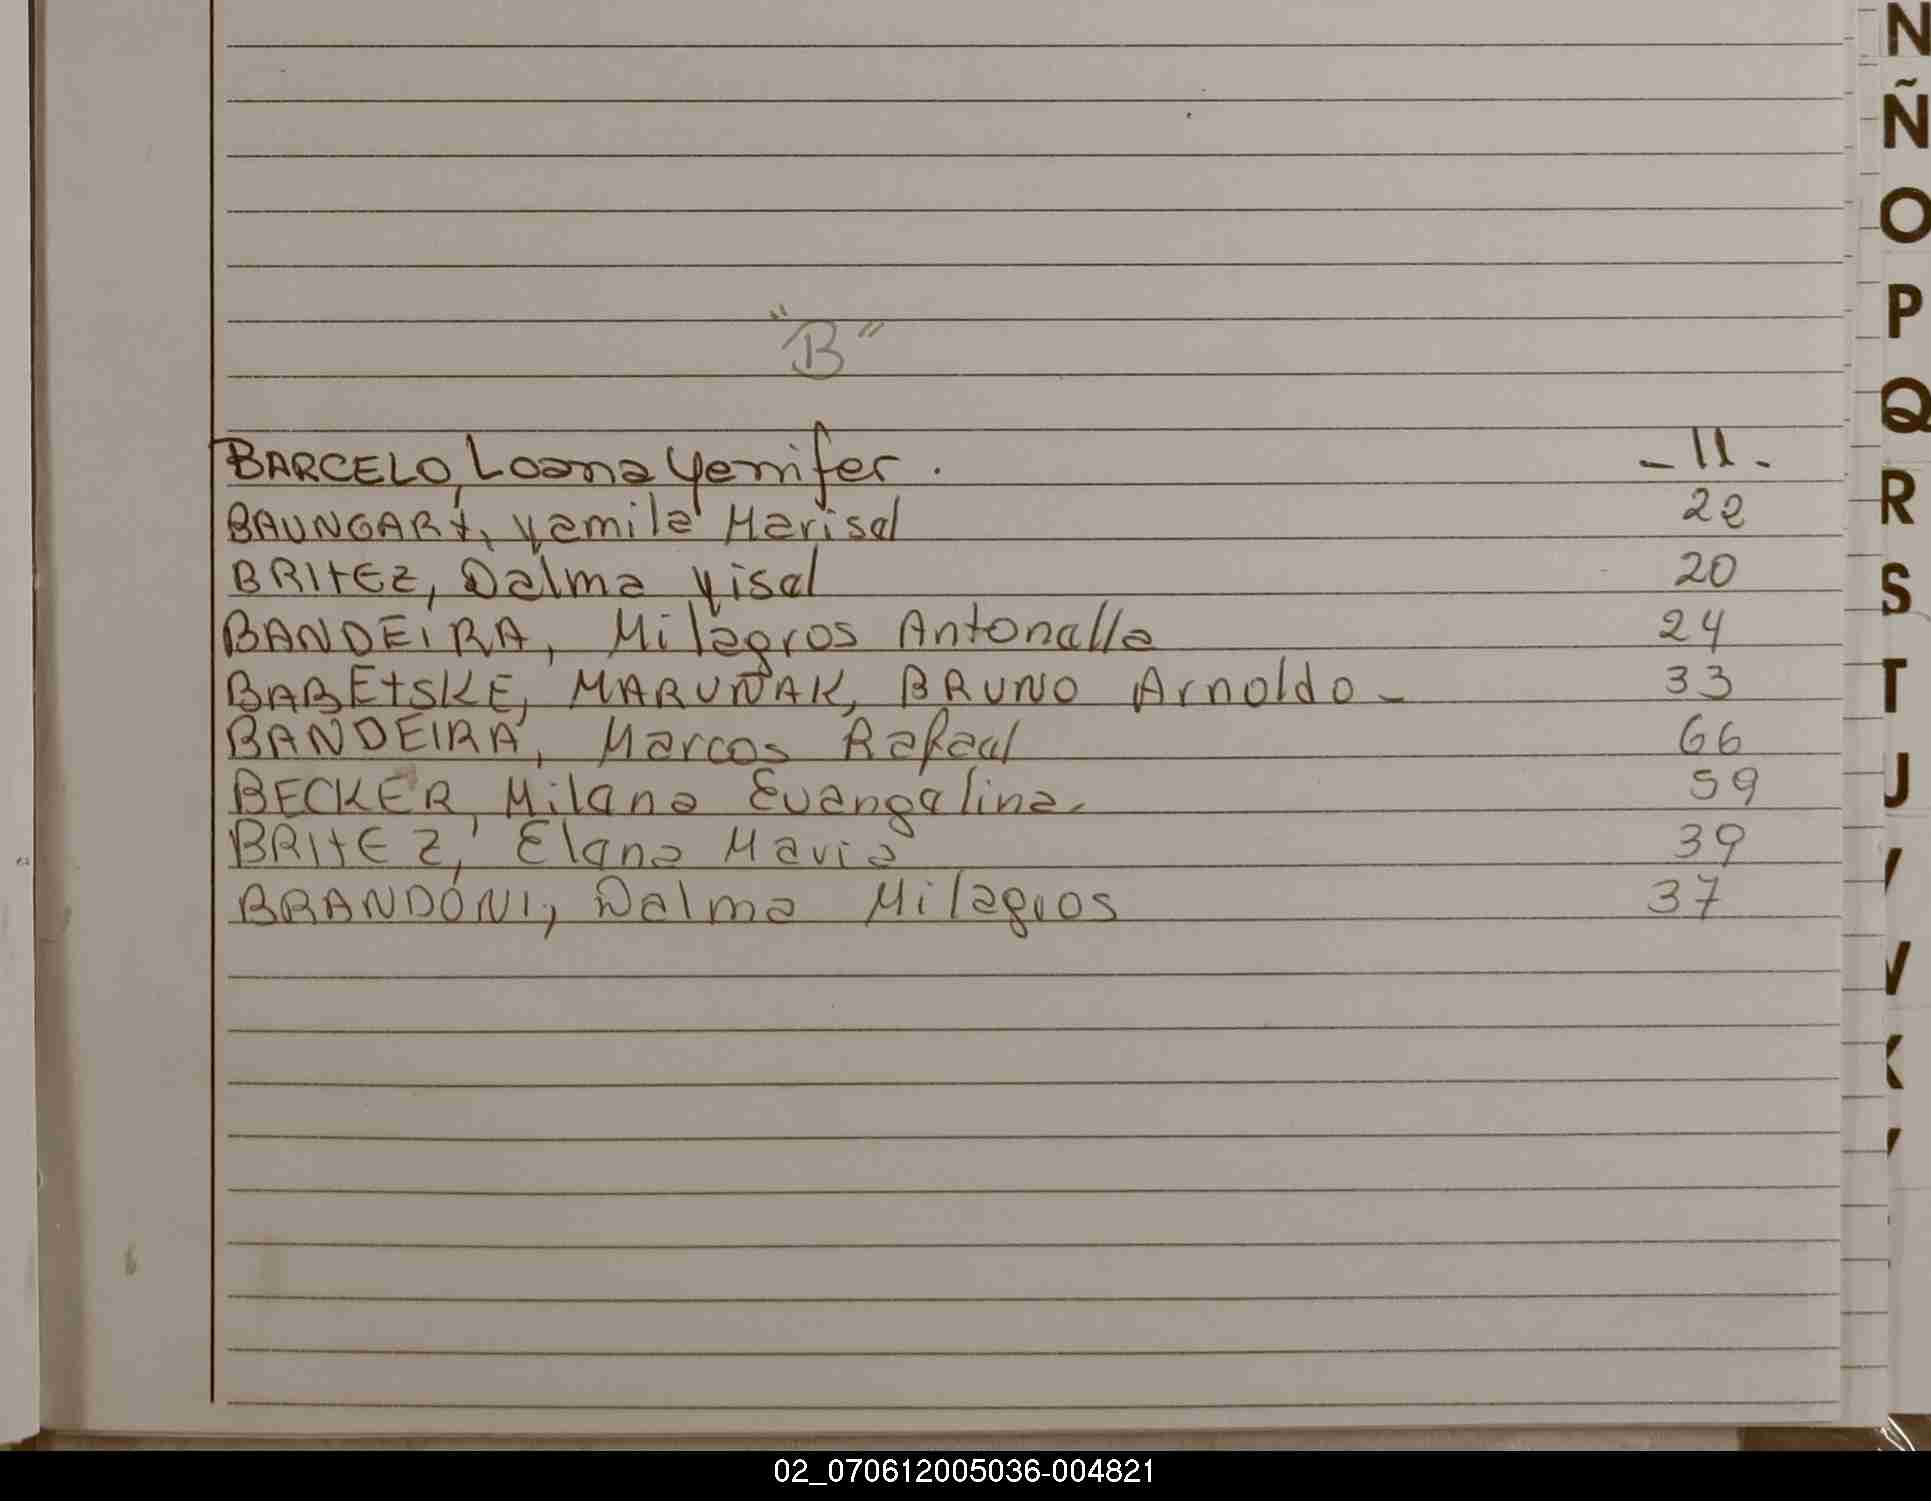 N
Ñ
O
P
Q
R
S
T
U
V
"B"
BARCELO, Loana Yennifer. - 11 -
BAUNGART, Yamila Marisel 22
BRITEZ, Dalma Yisel 20
BANDEIRA, Milagros Antonella 24
BABETSKE, MARUÑAK, BRUNO Arnoldo - 33
BANDEIRA, Marcos Rafael 66
BECKER, Milena Evangelina. 59
BRITEZ, Elena María 39
BRANDONI, Dalma Milagros 37
02_070612005036-004821